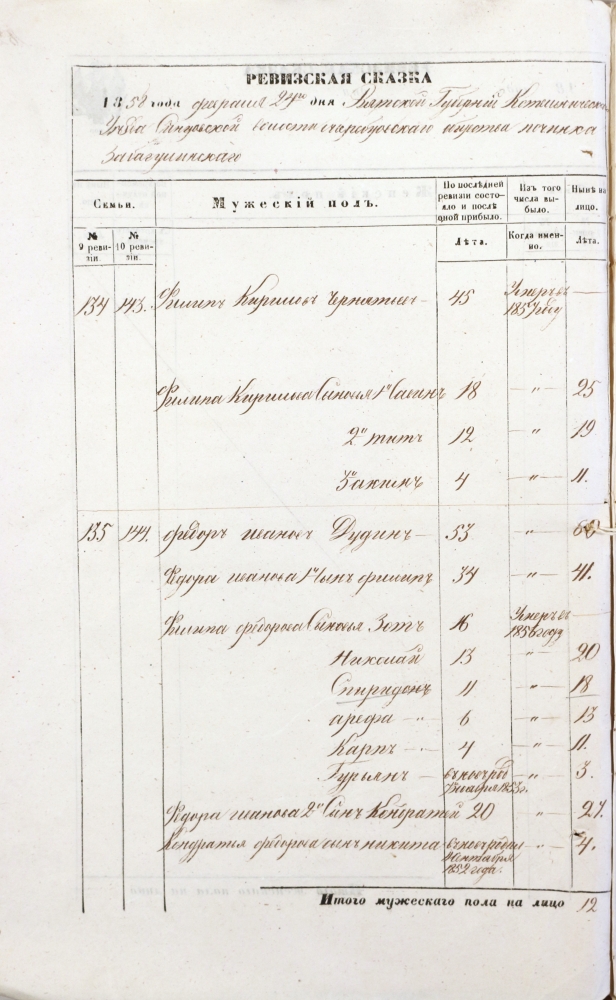 РЕВИЗСКАЯ СКАЗКА
1858 года февраля 24го дня Вятской Губернiи Котельническаго
Уѣзда волости общества починка
Семьи. Мужескiй полъ. По послѣдней ревизiи состояло и послѣ оной прибыло. Изъ того числа выбыло. Нынѣ на лицо.
№ 9 ревизiи. № 10 ревизiи. Лѣта. Когда именно. Лѣта.
134 143. Филипъ Кириловъ 45 Умеръ въ 1857 году —
Филипа Кирилова Сыновья 1й 18 „ — 25
2й титъ 12 „ — 19
3й акимъ 4 „ — 11.
135 144. федоръ ивановъ Дудинъ — 53 „ — 60
Федора иванова 1й Сынъ филипъ 34 „ — 41.
Филипа федорова Сыновья Зотъ 16 Умеръ въ 1856 году
Николай 13 „ — 20
Спиридонъ 11 „ — 18
арефа — „ 6 „ — 13
Карпъ — 4 „ — 11.
Гурьянъ — „ — 3.
Федора иванова 2й Сынъ Кондратей 20 „ 27.
Кондратья федорова сынъ никита „ — 4.
1852 года.
Итого мужескаго пола на лицо 12